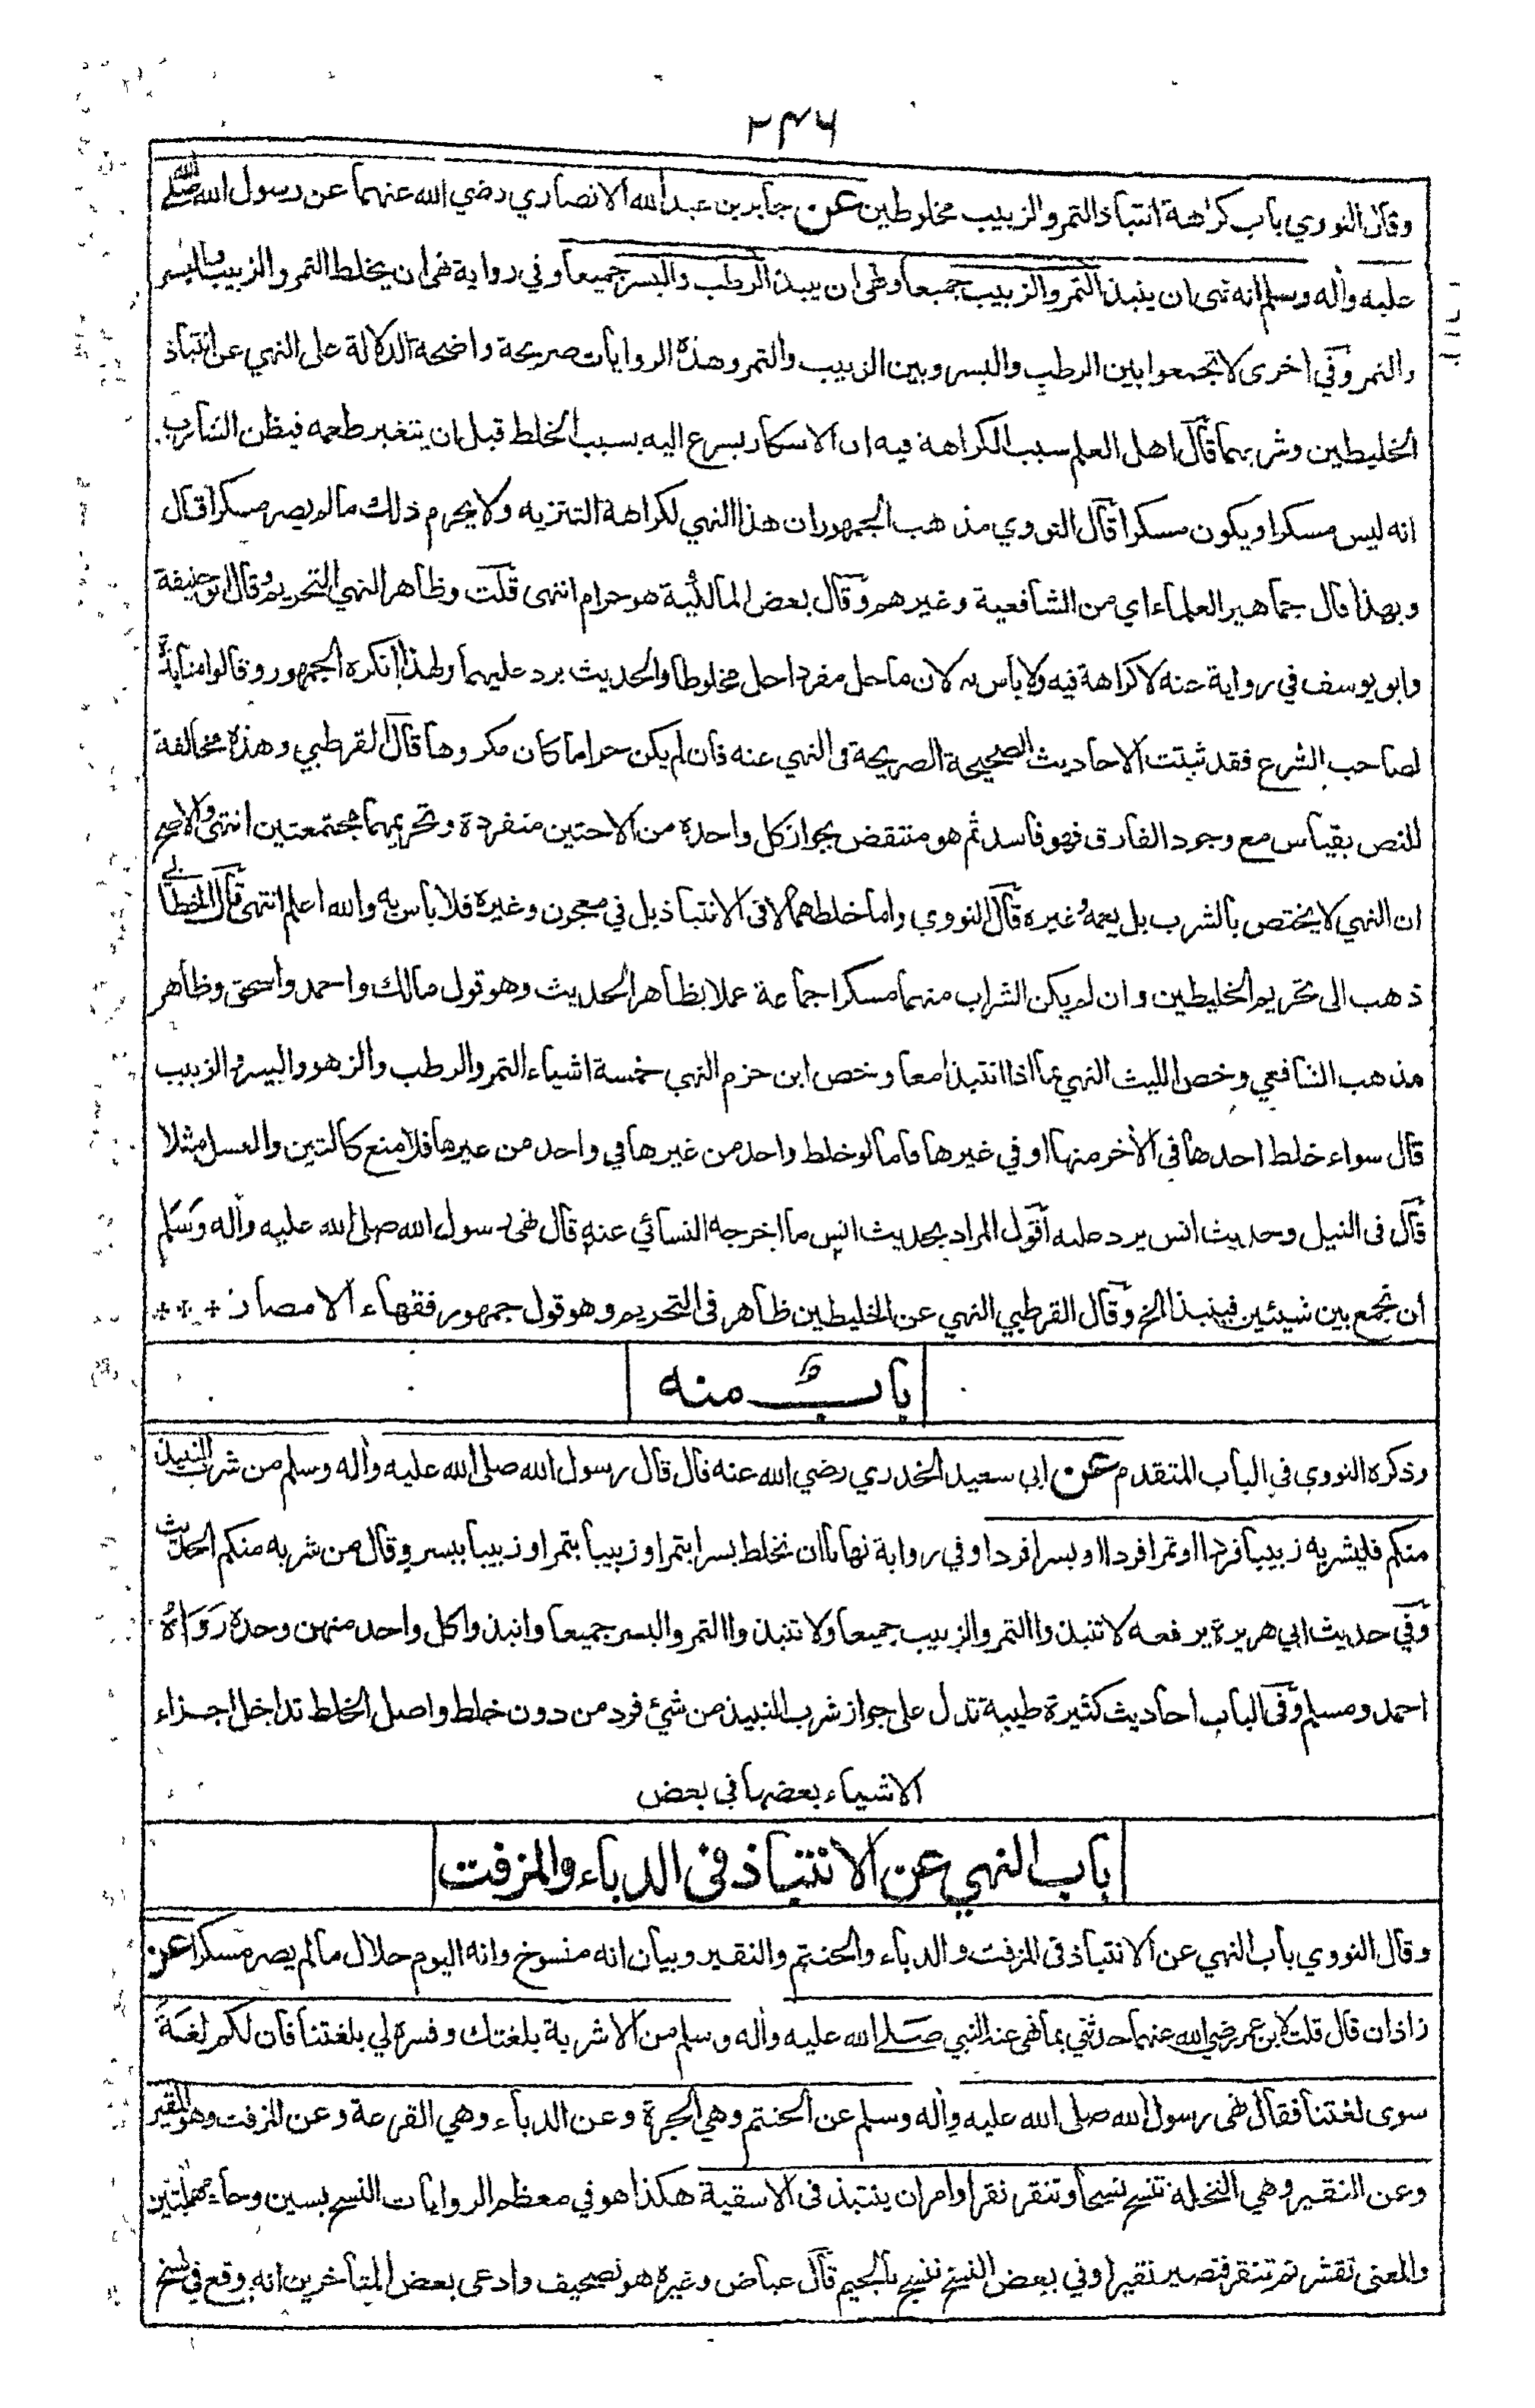 ٢٣٦
وقال النووي باب كراهة انتباذ التمر والزبيب مخلوطين عن جابر بن عبد الله الانصاري رضي الله عنهما عن رسول الله صلى الله
عليه وأله وسلم انه نهى ان ينبذ التمر والزبيب جميعا ونهى ان ينبذ الرطب والبسر جميعا وفي رواية نهى ان يخلط التمر والزبيب والبسر
والتمر وفي اخرى لا تجمعوا بين الرطب والبسر وبين الزبيب والتمر وهذه الروايات صريحة واضحة الدلالة على النهي عن انتباذ
الخليطين وشربهما قال اهل العلم سبب الكراهة فيه ان الاسكار يسرع اليه بسبب الخلط قبل ان يتغير طعمه فيظن الشارب
انه ليس مسكرا ويكون مسكرا قال النووي مذهب الجمهور ان هذا النهي لكراهة التنزيه ولا يحرم ذلك مالم يصر مسكرا قال
وبهذا قال جماهير العلماء اي من الشافعية وغيرهم وقال بعض المالكية هو حرام انتهى قلت وظاهر النهي التحريم وقال ابو حنيفة
وابو يوسف في رواية عنه لا كراهة فيه ولا باس به لان ما حل مفردا حل مخلوطا والحديث يرد عليهما ولهذا انكره الجمهور وقالوا منابذة
لصاحب الشرع فقد ثبتت الاحاديث الصحيحة الصريحة في النهي عنه فان لم يكن حراما كان مكروها قال القرطبي وهذه مخالفة
للنص بقياس مع وجود الفارق فهو فاسد ثم هو منتقض بجواز كل واحدة من الاختين منفردة وتحريمهما مجتمعتين انتهى والاصح
ان النهي لا يختص بالشرب بل يعمه وغيره قال النووي واما خلطهما لا في الانتباذ بل في معجون وغيره فلا باس به والله اعلم انتهى قال الخطابي
ذهب الى تحريم الخليطين وان لم يكن الشراب منهما مسكرا جماعة عملا بظاهر الحديث وهو قول مالك واحمد واسحق وظاهر
مذهب الشافعي وخص الليث النهي بما اذا انتبذا معا وخص ابن حزم النهي خمسة اشياء التمر والرطب والزهو والبسر والزبيب
قال سواء خلط احدها في الأخر منها او في غيرها فاما لو خلط واحد من غيرها في واحد من غيرها فلا منع كالتين والعسل مثلا
قال في النيل وحديث انس يرد عليه أقول المراد بحديث انس ما اخرجه النسائي عنه قال نهى رسول الله صلى الله عليه وأله وسلم
أن نجمع بين شيئين فينبذا الخ وقال القرطبي النهي عن الخليطين ظاهر في التحريم وهو قول جمهور فقهاء الامصار
باب منه
وذكره النووي في الباب المتقدم عن ابي سعيد الخدري رضي الله عنه قال قال رسول الله صلى الله عليه وأله وسلم من شرب النبيذ
منكم فليشربه زبيبا فردا او تمرا فردا او بسرا فردا وفي رواية نهانا ان نخلط بسرا بتمر او زبيبا بتمر او زبيبا ببسر وقال من شربه منكم الحديث
وفي حديث ابي هريرة يرفعه لا تنبذوا التمر والزبيب جميعا ولا تنبذوا التمر والبسر جميعا وانبذوا كل واحد منهن وحده رواه
احمد ومسلم وفي الباب احاديث كثيرة طيبة تدل على جواز شرب النبيذ من شئ فرد من دون خلط واصل الخلط تداخل اجزاء
الاشياء بعضها في بعض
باب النهي عن الانتباذ في الدباء والمزفت
وقال النووي باب النهي عن الانتباذ في المزفت والدباء والحنتم والنقير وبيان انه منسوخ وانه اليوم حلال مالم يصر مسكرا عن
زاذان قال قلت لابن عمر رضي الله عنهما حدثني بما نهى عنه النبي صلى الله عليه وأله وسلم من الاشربة بلغتك وفسره لي بلغتنا فان لكم لغة
سوى لغتنا فقال نهى رسول الله صلى الله عليه وأله وسلم عن الحنتم وهي الجرة وعن الدباء وهي القرعة وعن المزفت وهو المقير
وعن النقير وهي النخلة تنسح نسحا وتنقر نقرا وامر ان ينتبذ في الاسقية هكذا هو في معظم الروايات النسح بسين وحاء مهملتين
والمعنى تقشر ثم تنقر فتصير نقيرا وفي بعض النسخ تنسج بالجيم قال عياض وغيره هو تصحيف وادعى بعض المتأخرين انه وقع في نسخ